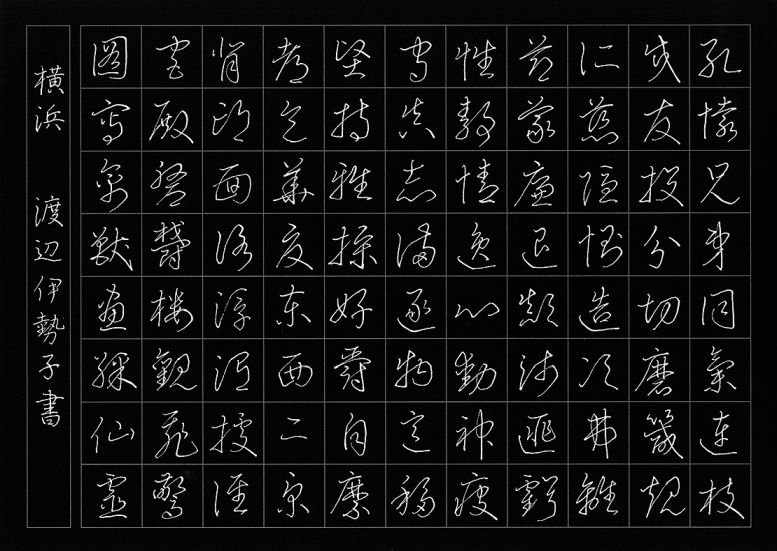 孔懐兄弟同氣連枝
交友投分切磨箴規
仁慈隠惻造次弗離
節義廉退顛沛匪虧
性静情逸心動神疲
守真志満逐物意移
堅持雅操好爵自縻
都邑華夏東西二京
背邙面洛浮渭據涇
宮殿盤鬱楼觀飛驚
圖寫禽獣畫綵仙靈
横浜 渡辺伊勢子書